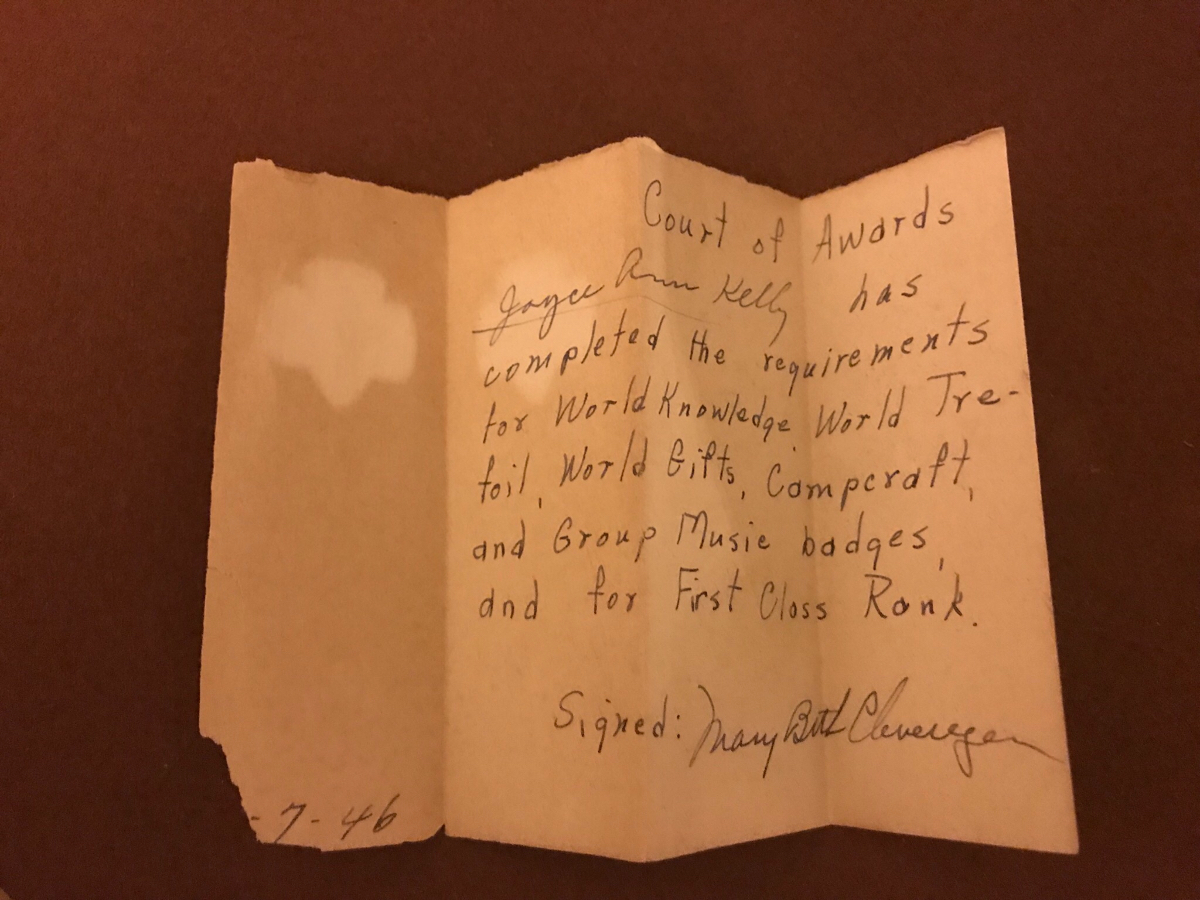 Court of Awards
Joyce Ann Kelly has
completed the requirements
for World Knowledge, World Tre-
foil, World Gifts, Campcraft,
and Group Music badges,
and for First Class Rank.
Signed: Mary Beth
-7-46